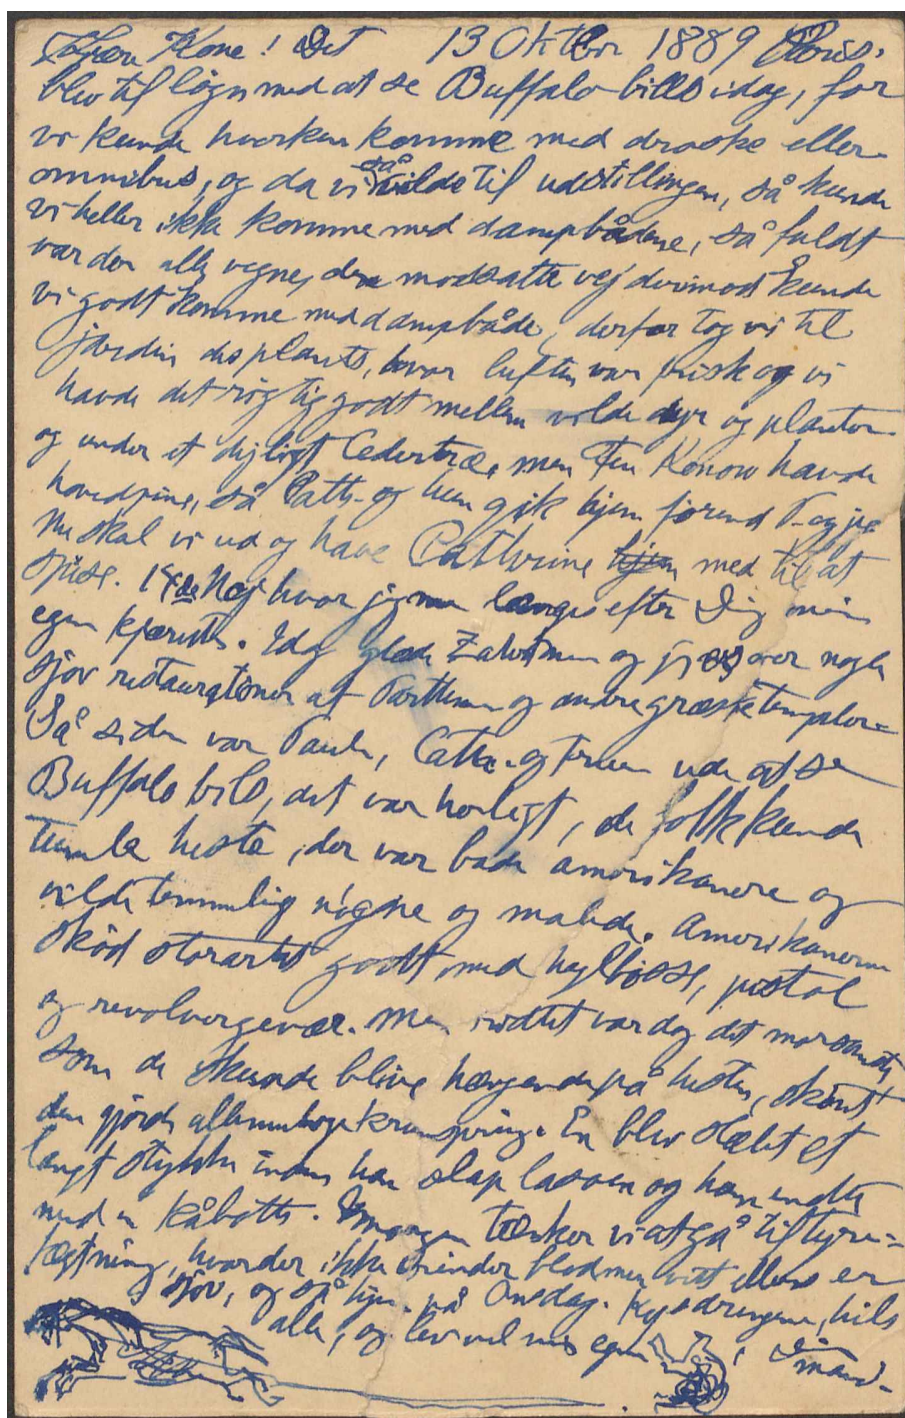 Kjære Kone! Det 13 Oktbr 1889 Paris.
blev til løgn med at se Buffalo bills idag, for
vi kunde hverken komme med droske eller
omnibus, og da vi så vilde til udstillingen, så kunde
vi heller ikke komme med dampbådene, så fuldt
var der alle vegne, den modsatte vej derimod kunde
vi godt komme med dampbåde, derfor tog vi til
jardin des plantes, hvor luften var frisk og vi
havde det rigtig godt mellem vilde dyr og planter
og under et dejligt Cedertræ, men Fru Konow havde
hovedpine, så Cath. og hun gik hjem førend P. og jeg
Nu skal vi ud og have Cathrine hjem med til at
spise. 14de Nej hvor jeg længes efter Dig min
egen kjæreste. Idag glæde Zahrtmann og jeg os over nogle
sjov restaurationer af Parthenon og andre græske templer.
Så siden var Paul, Cath. og Fruen ude at se
Buffalo bill, det var herligt, de folk kunde
tumle heste, der var både amerikanere og
vilde temmelig nøgne og malede. Amerikanerne
skød storartet godt med kuglbøsse, pistol
og revolvergevær. Men ridtet var dog det morsomste,
som de kunde blive hængende på hesten, skønt
den gjorde allemulige krumspring. En blev slæbt et
langt stykke inden han slap lassoen og han endte
med en kåbøtte. Imorgen tænker vi at gå til tyre-
fægtning, hvor der ikke rinder blod men vist ellers er
sjov, og så hjem på Onsdag. Kys drengene, hils
alle, og lev vel min egen , Din
mand.